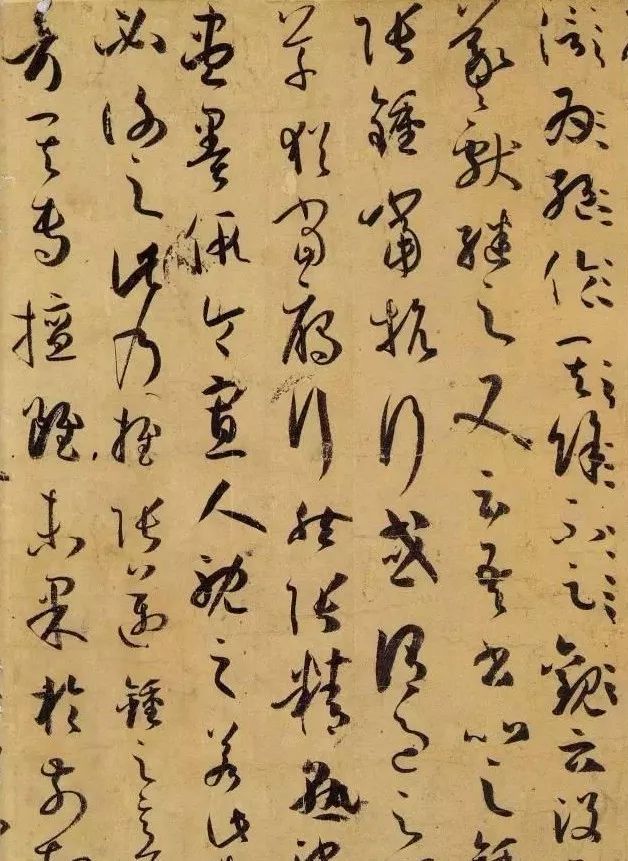 為絶倫其餘不足觀云没
羲獻繼之又云吾書比之鍾
張鍾當抗行或謂過之
草猶當鴈行然張精熟池
盡墨假令寡人耽之若此
必謝之此乃推張邁鍾之意
考其專擅雖未果於前規